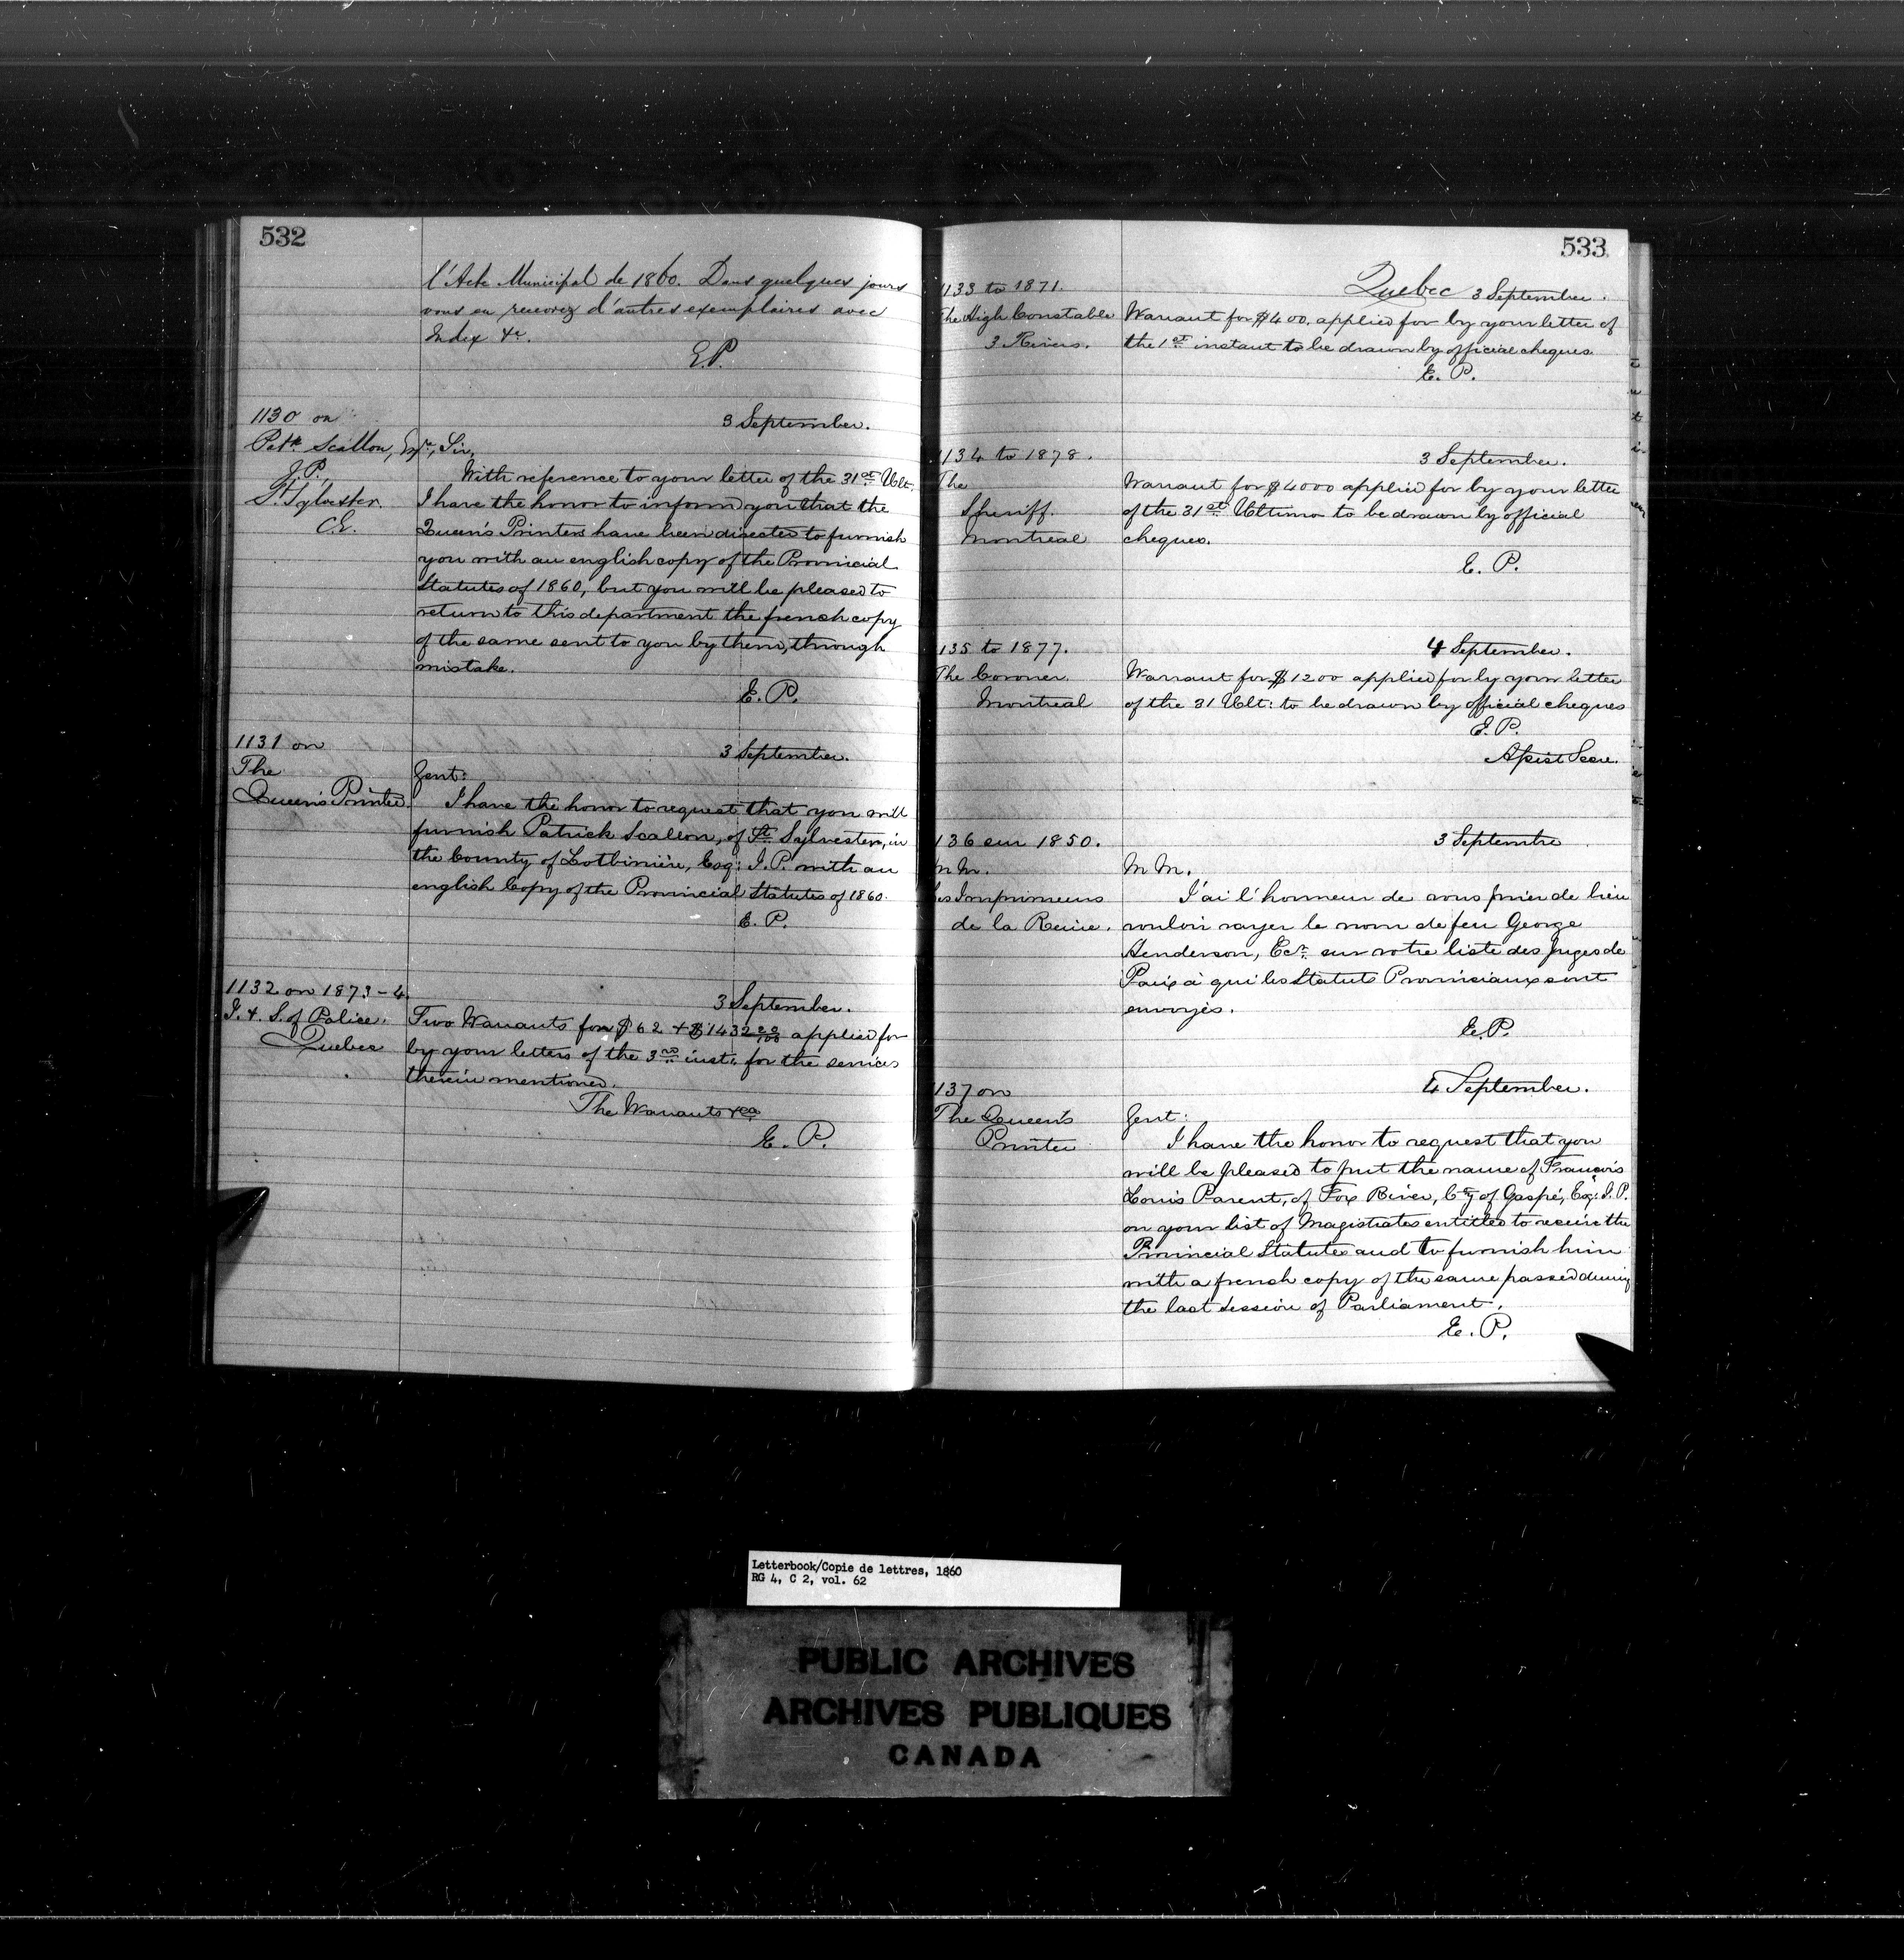 532
l'Acte Municipal de 1860. Dans quelques jours
vous en recevrez d'autres exemplaires avec
Index &c.
E.P.
1130 on
3 September.
Patk. Scallon, Esqre., Sir,
J.P.
St. Sylvester.
C.E.
With reference to your letter of the 31st Ult.
I have the honor to inform you that the
Queen's Printers have been directed to furnish
you with an english copy of the Provincial
Statutes of 1860, but you will be pleased to
return to this department the french copy
of the same sent to you by them, through
mistake.
E. P.
1131 on
3 September.
The
Queen's Printer.
Gent:
I have the honor to request that you will
furnish Patrick Scallon, of St. Sylvester, in
the County of Lotbinière, Esq: J.P. with an
english Copy of the Provincial Statutes of 1860.
E. P.
1132 on 1873-4.
3 September.
I. & S. of Police.
Quebec
Two Warrants for $62 & $1432 applied for
by your letters of the 3rd inst. for the services
therein mentioned.
The Warrants &ca
E. P.
533
Quebec 3 September.
1133 to 1871.
The High Constable
3 Rivers.
Warrant for $400. applied for by your letter of
the 1st instant to be drawn by official cheques.
E. P.
1134 to 1878.
3 September.
The
Sheriff.
Montreal
Warrant for $4000 applied for by your letter
of the 31st Ultimo to be drawn by official
cheques.
E. P.
135 to 1877.
4 September.
The Coroner.
Montreal
Warrant for $1200 applied for by your letter
of the 31 Ult: to be drawn by official cheques
E.P.
Assist Secre.
136 sur 1850.
3 Septembre
M M.
Les Imprimeurs
de la Reine.
M M.
J'ai l'honneur de vous prier de bien
vouloir rayer le nom de feu George
Henderson, Ecr. sur votre liste des Juges de
Paix à qui les Statuts Provinciaux sont
envoyés.
E.P.
1137 on
4 September.
The Queen's
Printer
Gent:
I have the honor to request that you
will be pleased to put the name of François
Louis Parent, of Fox River, Cty of Gaspé, Esq: J.P.
on your list of Magistrates entitled to receive the
Provincial Statutes and to furnish him
with a french copy of the same passed during
the last Session of Parliament.
E. P.
Letterbook/Copie de lettres, 1860
RG 4, C 2, vol. 62
PUBLIC ARCHIVES
ARCHIVES PUBLIQUES
CANADA